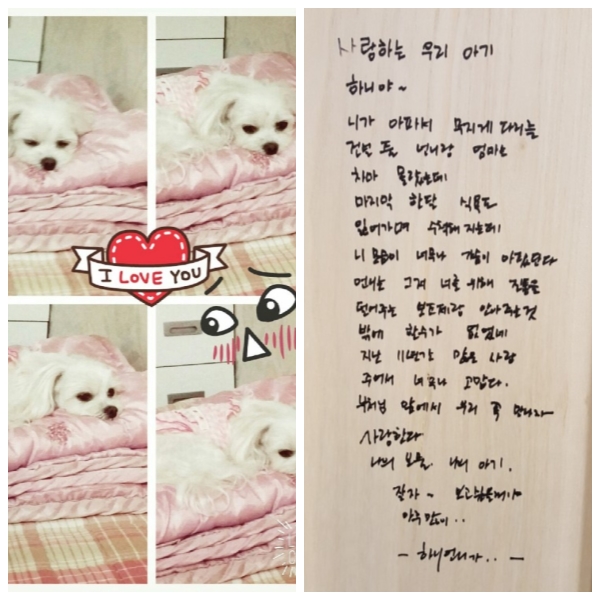 I LOVE YOU
사랑하는 우리 아기
하니야~
니가 아파서 무지개 다리를
건널 줄 언니랑 엄마는
차마 몰랐는데
마지막 한달 식욕도
잃어가며 수척해 지는데
니 모습이 너무나 가슴이 아팠단다
언니는 그저 너를 위해
보는 안아주는 것
밖에 할수가 없었네
지난 11년간 많은 사랑
주어서 너무나 고맙다.
부처님 앞에서 우리 꼭 만나자
사랑한다
나의 보물 나의 아기.
잘자~ 보고싶을꺼야
아주 많이..
- 하니언니가.. -